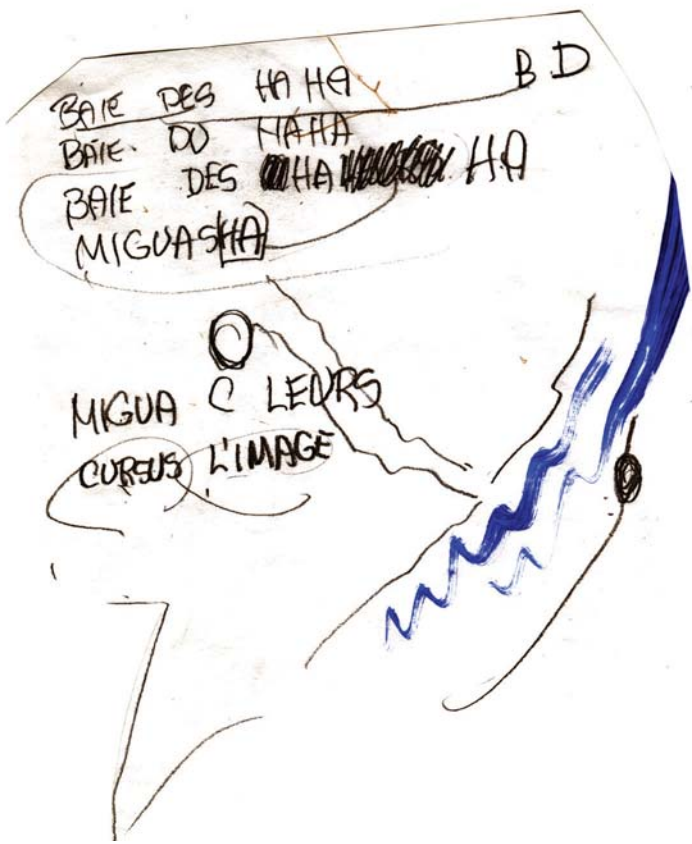 BAIE DES HA HA
B D
BAIE DU HAHA
BAIE DES HA HA
MIGUASHA
MIGUA C LEURS
CURSUS L'IMAGE